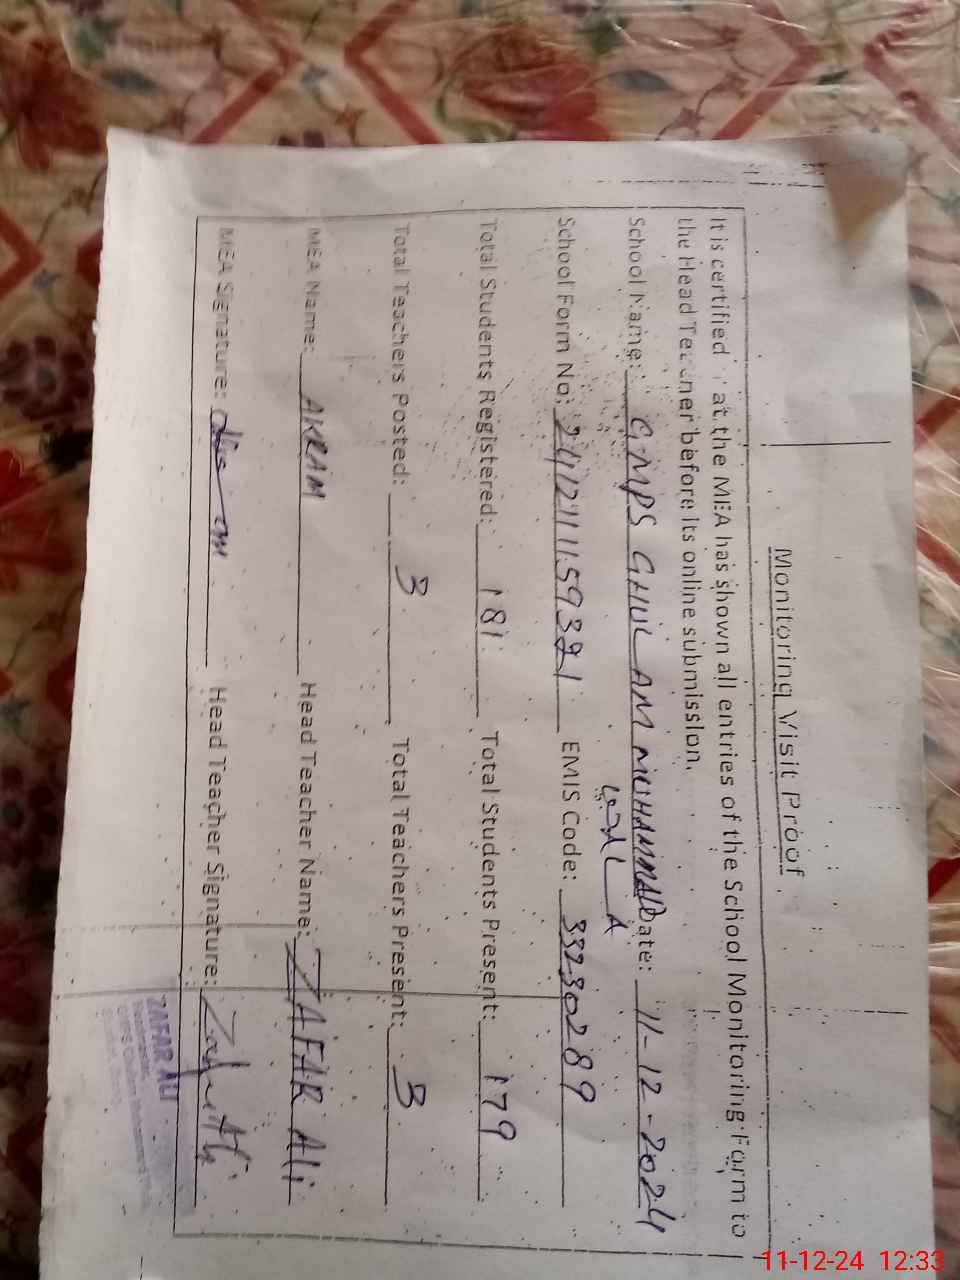 Monitoring Visit Proof
It is certified at the MEA has shown all entries of the School Monitoring Form to
the Head Teacher before its online submission.
School Name: GMPS GHULAM MUHAMMAD Date: 11-12-2024
School Form No: EMIS Code: 33230289
Total Students Registered: 181 Total Students Present: 179
Total Teachers Posted: 3 Total Teachers Present: 3
MEA Name: AKRAM Head Teacher Name: ZAFAR Ali
MEA Signature: Head Teacher Signature: Zafar Ali
ZAFAR ALI
Headmaster
11-12-24 12:33